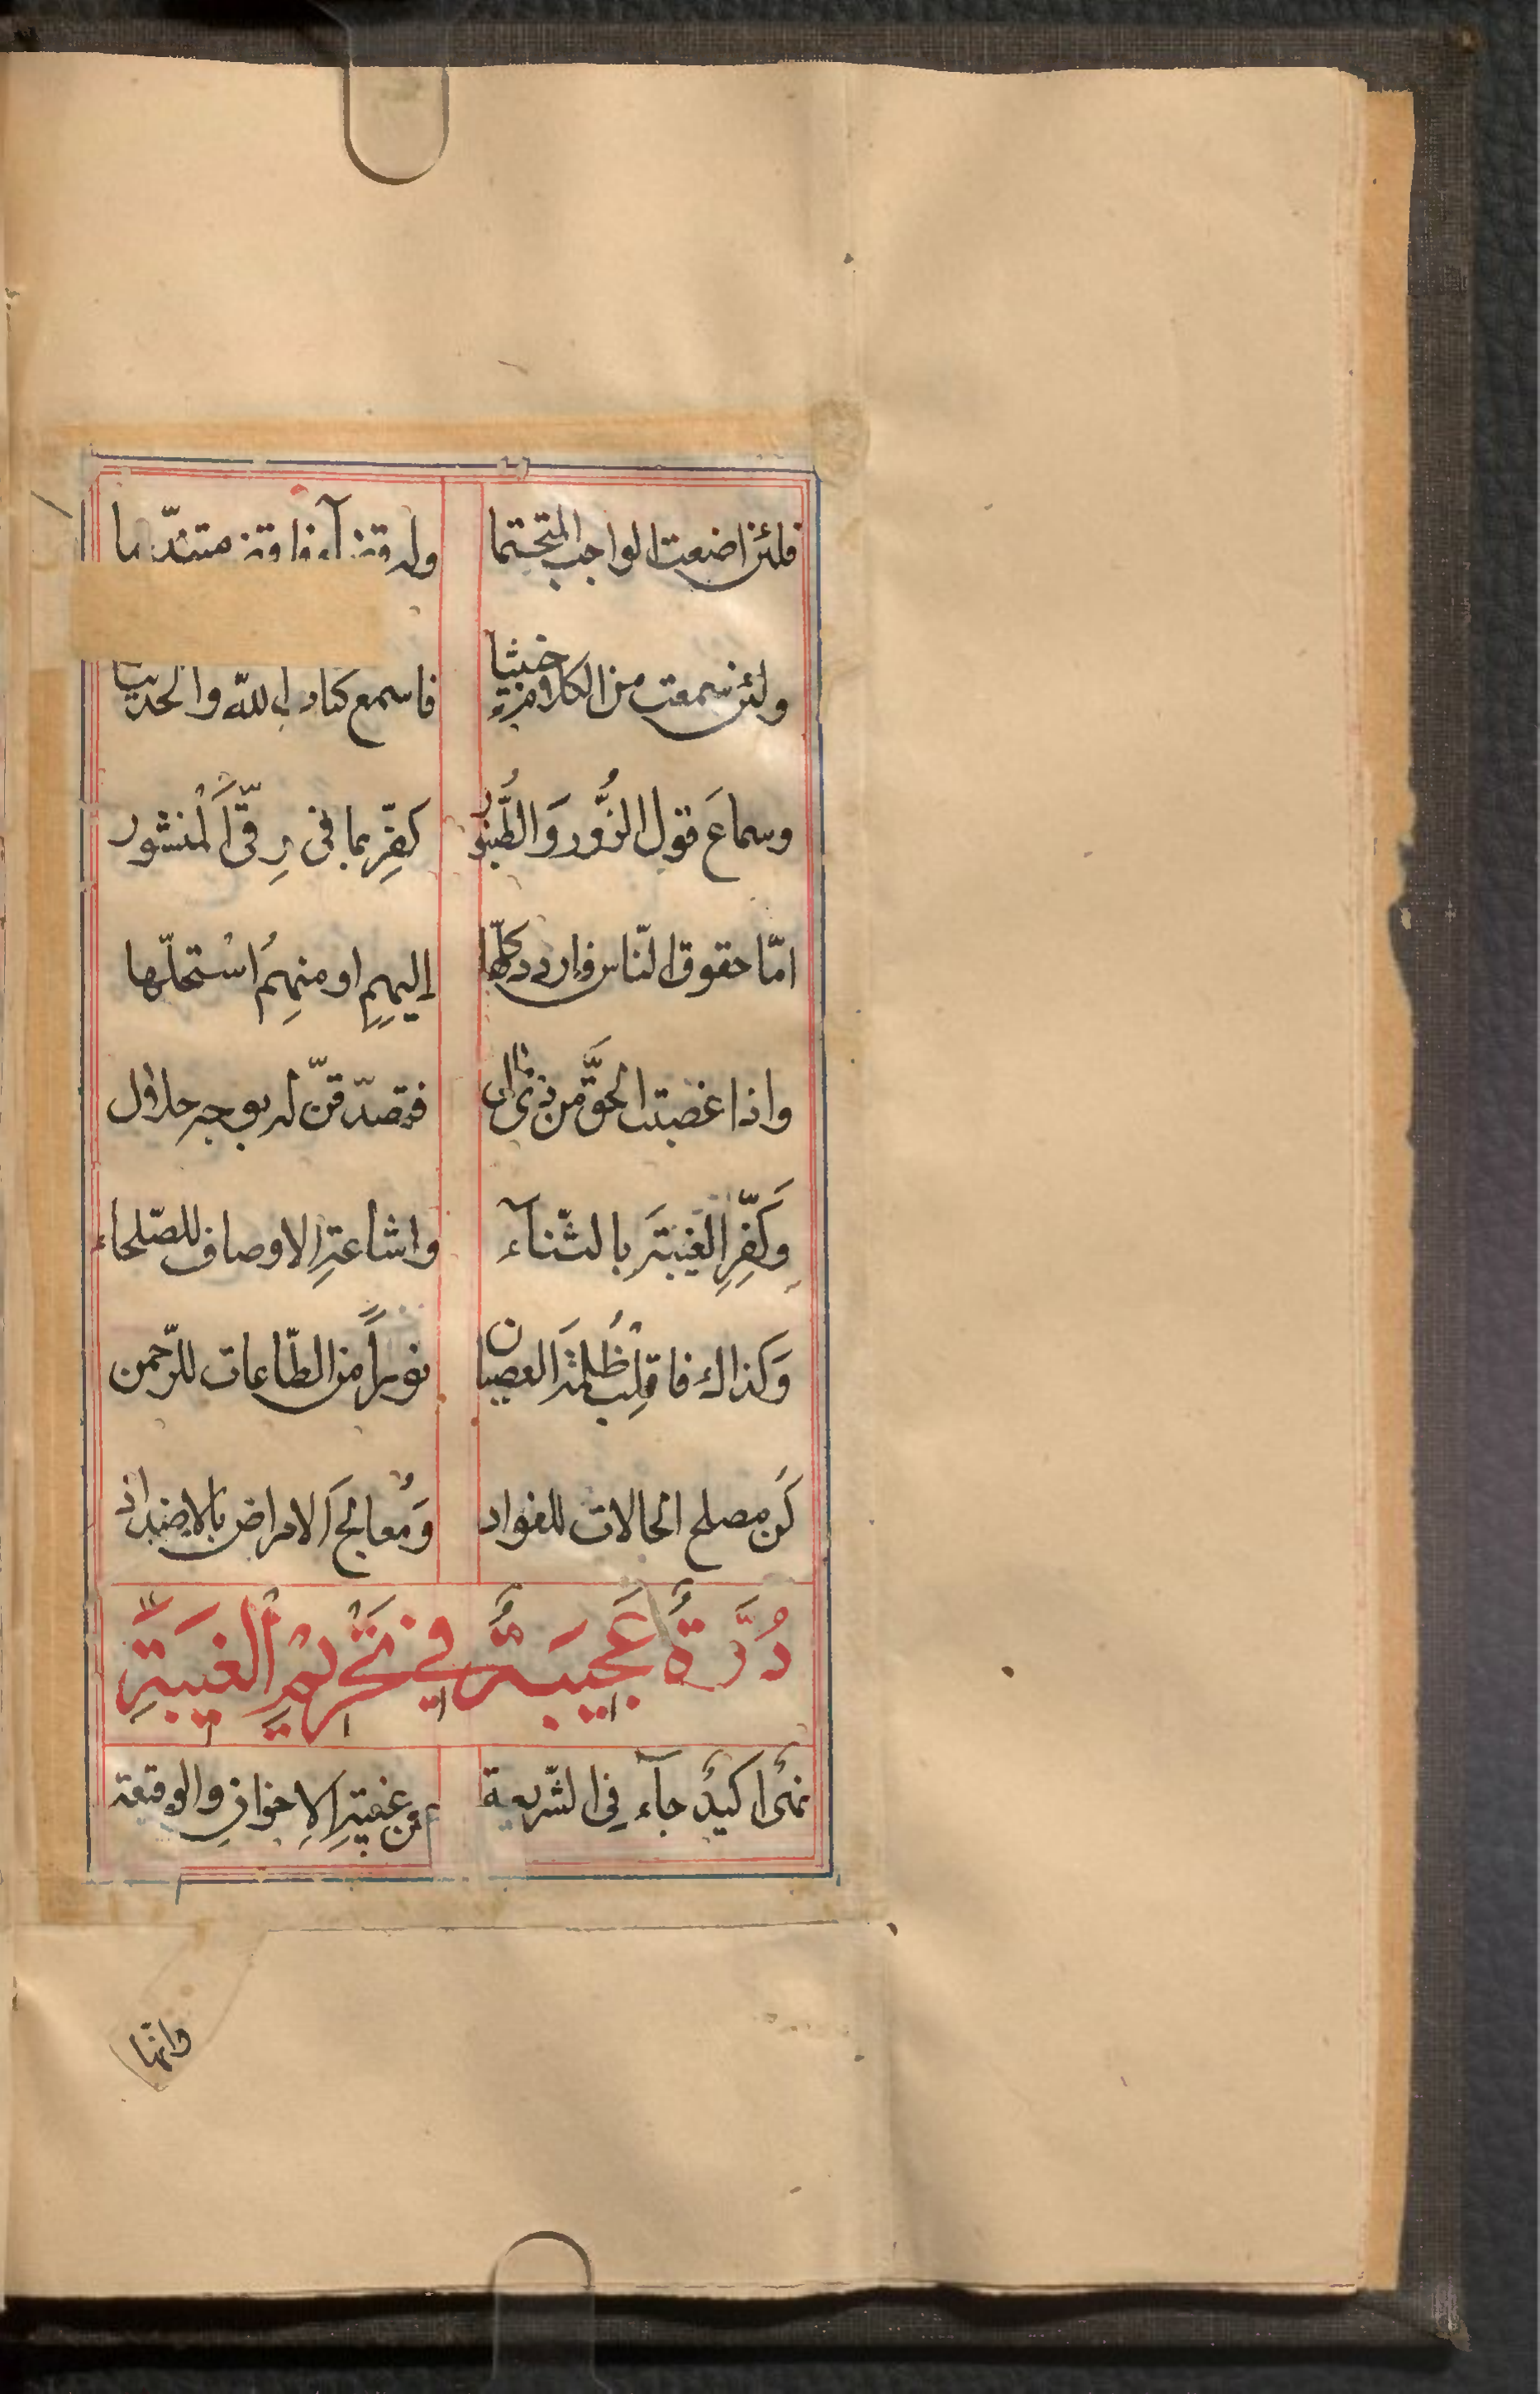 فلئن اضعت الواجب المتحتما
ولئن سمعت من الكلام خبيثا فاسمع كتاب الله والحديثا
وسماعَ قول الزُّور وَالطُّنبُور كفِّر بما في رِقِّ المنشور
امّا حقوق النّاس فاردد كلّها إليهِم او منهِمُ اسْتحلّها
واذا غصبت الحقَّ من ذى مال فتصدّقنّ له بوجه حلال
وَكَفِّرِ الغيبَةَ بالثّنآء واشاعةِ الاوصاف للصّلحاء
وَكذاك فاقلِب ظُلْمَة العصيان نوراً من الطّاعات للرّحمن
كُن مصلح الحالات للفواد وَمُعالج الامراض بالاضداد
دُرَّةٌ عَجيبَةٌ في تَحْريْمِ الْغيبَةِ
نهىٌ اكيدٌ جآء فى الشّريعة عن غيبةِ الاِخوانِ والوقيعة
وانّها